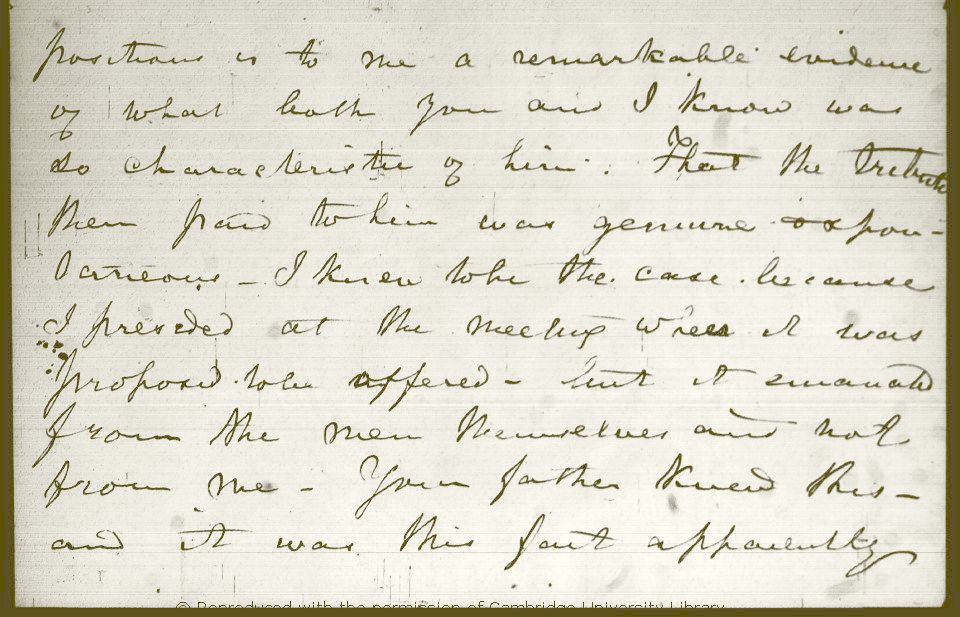 positions is to me a remarkable evidence
of what both you and I know was
so characteristic of him. That the tribute
then paid to him was genuine & spon-
taneous – I know to be the case because
I presided at the meeting when it was
proposed to be offered – but it emanated
from the men themselves and not
from me – Your father knew this –
and it was this fact apparently
© Reproduced with the permission of Cambridge University Library